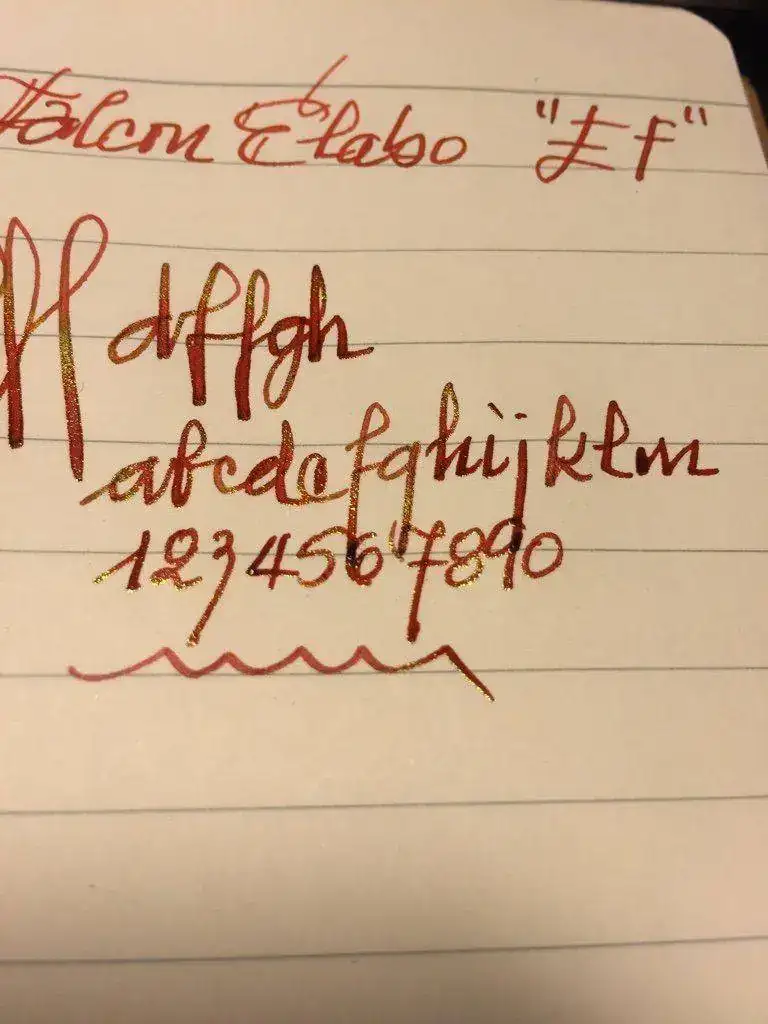 Falcon Elabo "EF"
ff dffgh
abcdefghijklm
1234567890